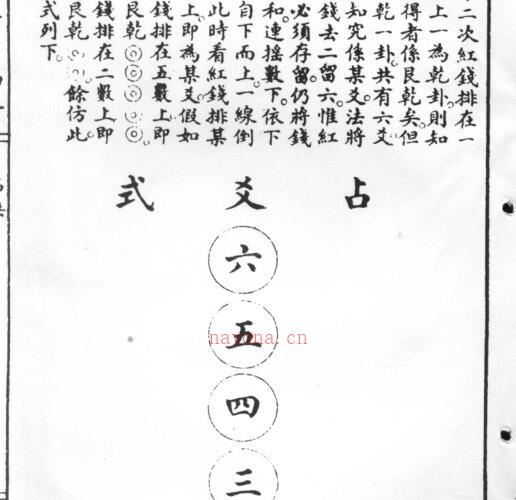 二次紅錢排在一
上一為乾卦則知
得者係艮乾矣但
乾一卦共有六爻
知究係某爻法將
錢去二留六惟紅
必須存留仍將錢
和連搖數下依下
自下而上一線倒
此時看紅錢排某
上即為某爻假如
錢排在五數上即
艮乾◎◎◎◎◎
錢排在二數上即
艮乾◎◎餘仿此
式列下
占爻式
六
五
四
三
nayona.cn